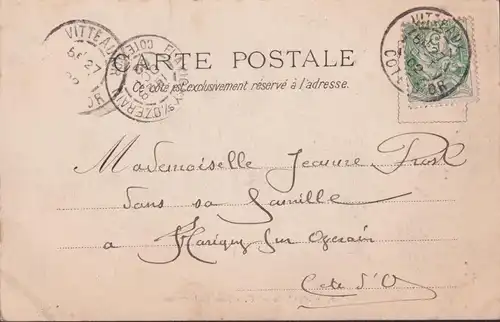 VITTEAUX
CARTE POSTALE
Ce côté est exclusivement réservé à l'adresse.
VITTEAUX
COTE D'OR
Mademoiselle Jeanne
dans sa famille
a Marigny sur Ozerain
Cote d'Or